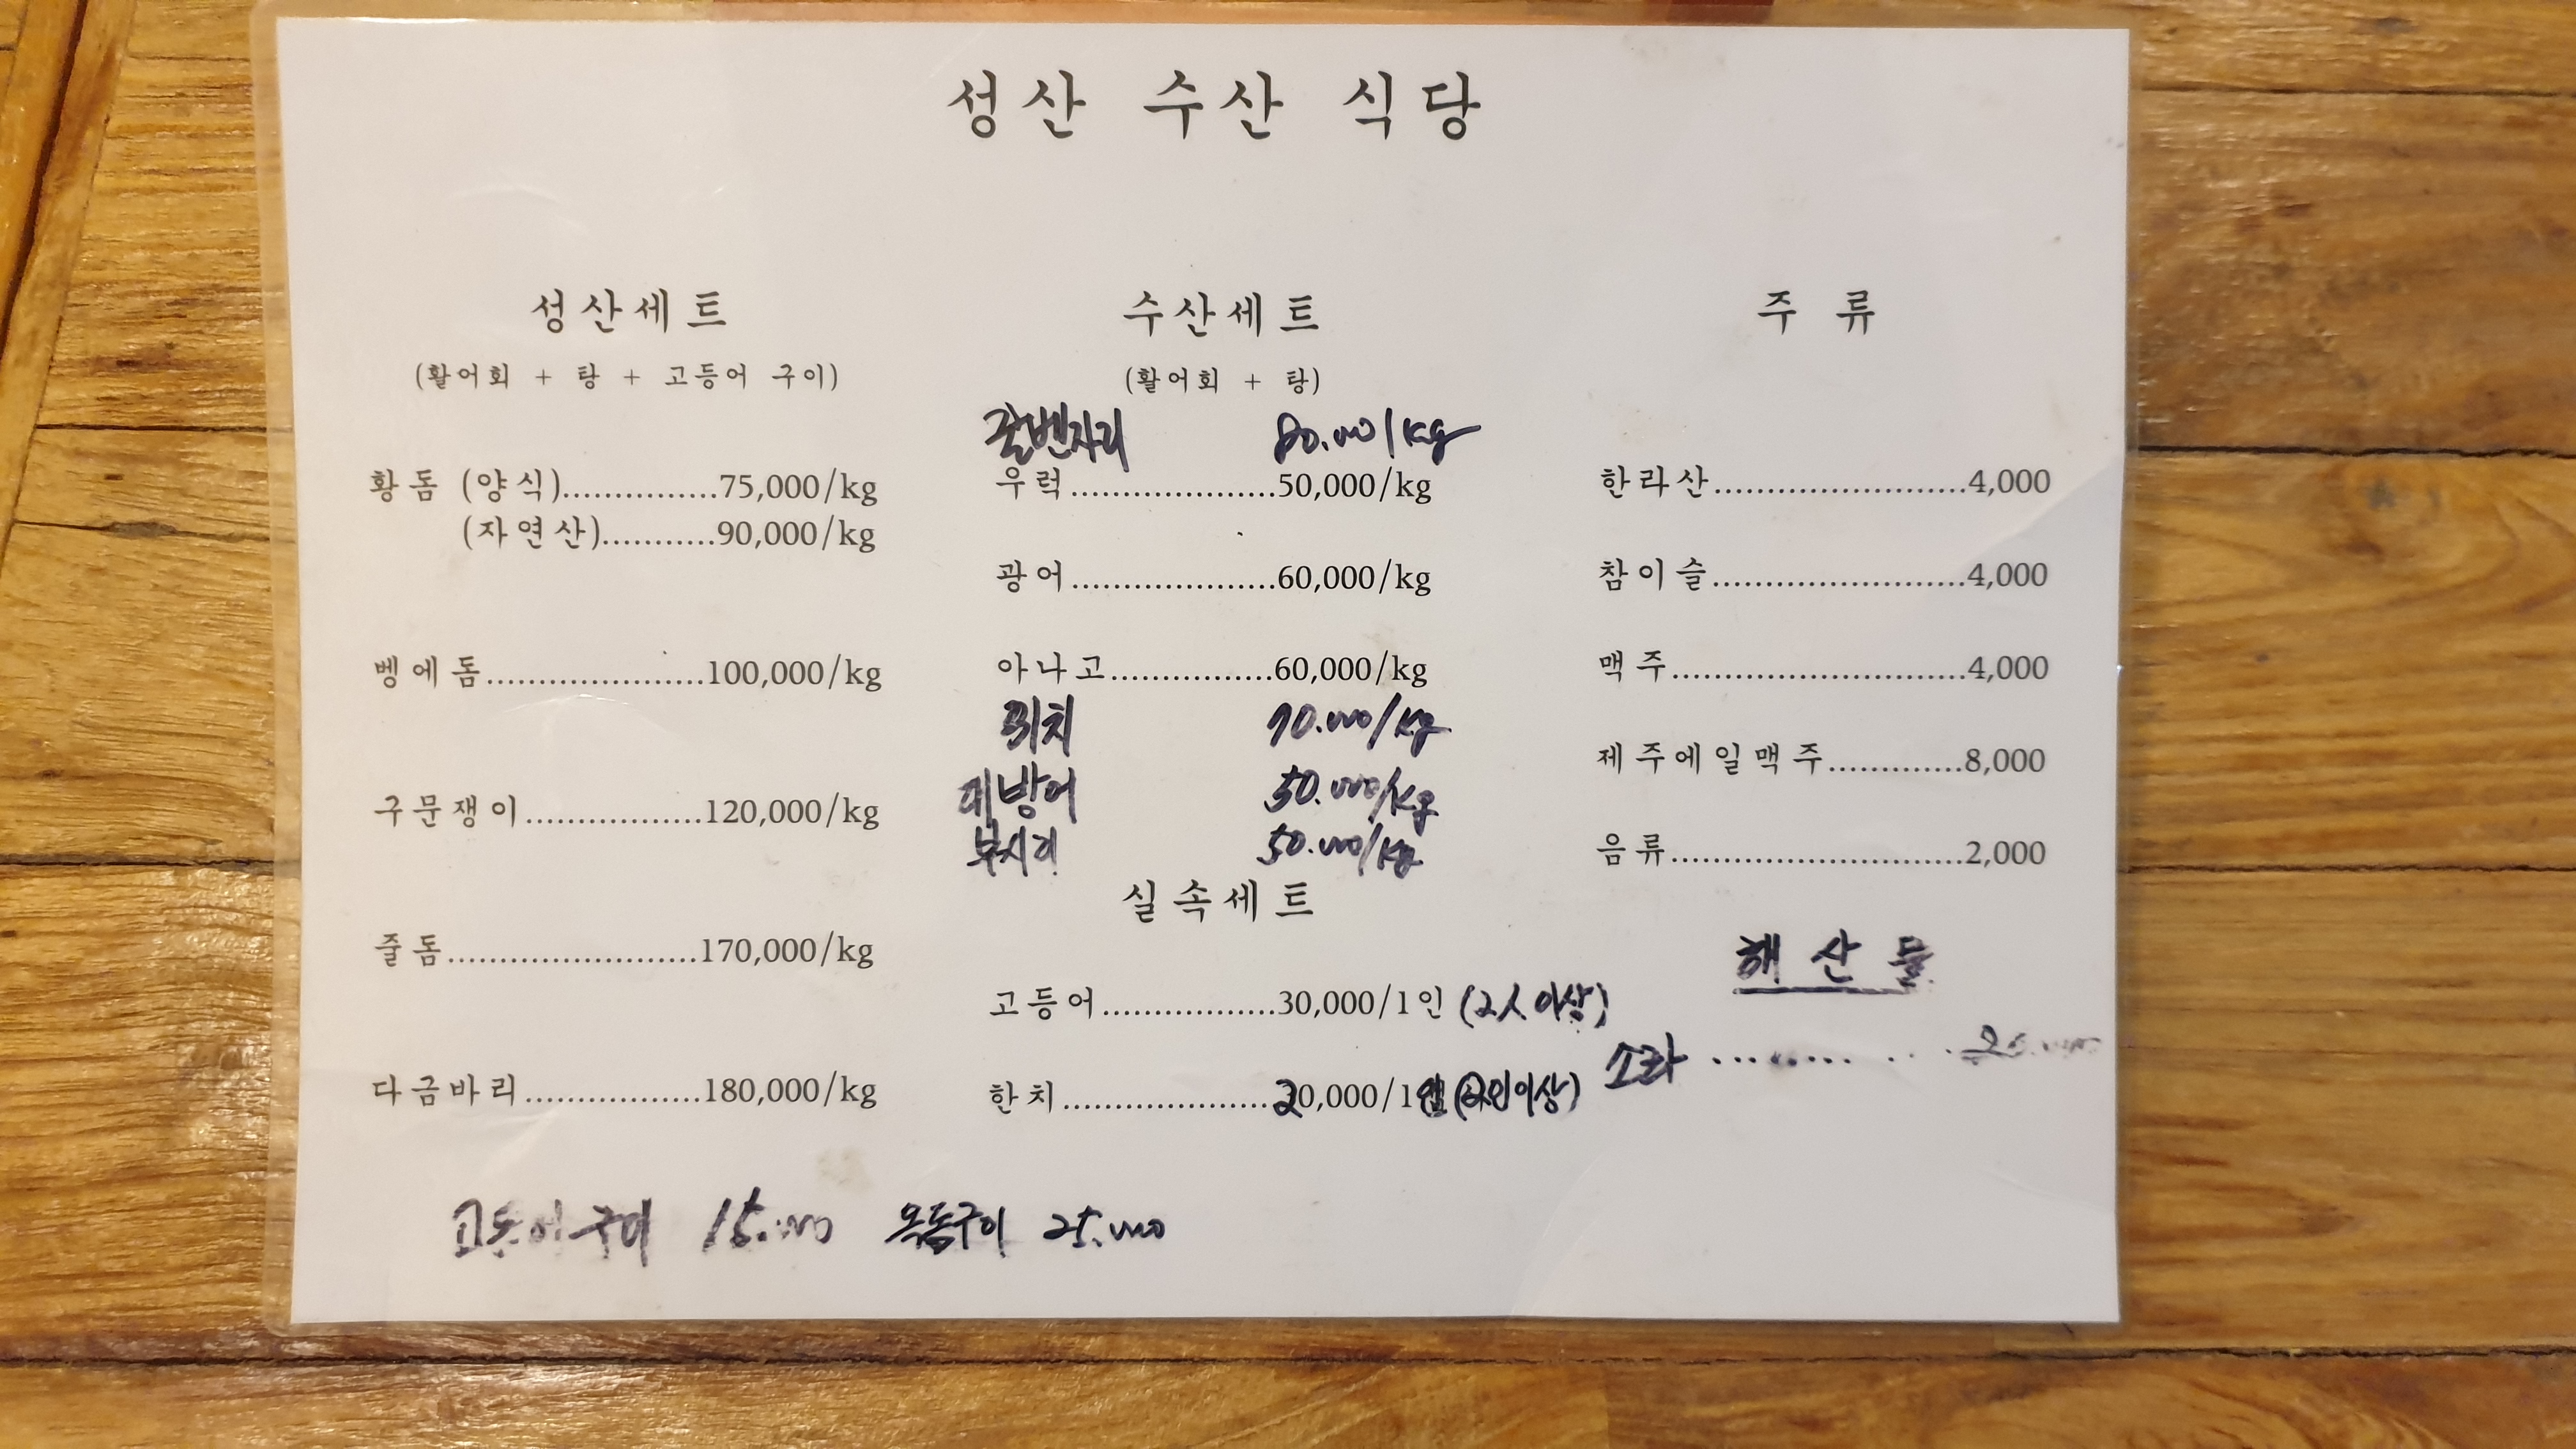 성산 수산 식당
성산세트
(활어회 + 탕 + 고등어 구이)
황돔 (양식)...............75,000/kg
(자연산)...........90,000/kg
벵에돔.....................100,000/kg
구문쟁이.................120,000/kg
줄돔........................170,000/kg
다금바리.................180,000/kg
수산세트
(활어회 + 탕)
80.000/kg
우럭....................50,000/kg
광어....................60,000/kg
아나고................60,000/kg
대방어 50.000/kg
부시리 50.000/kg
실속세트
고등어.................30,000/1인 (2人 이상)
한치....................20,000/1인 (2인이상)
주 류
한라산.........................4,000
참이슬.........................4,000
맥주.............................4,000
제주에일맥주.............8,000
음류.............................2,000
해산물
소라 ...........
고등어구이 15.000 옥돔구이 25.000